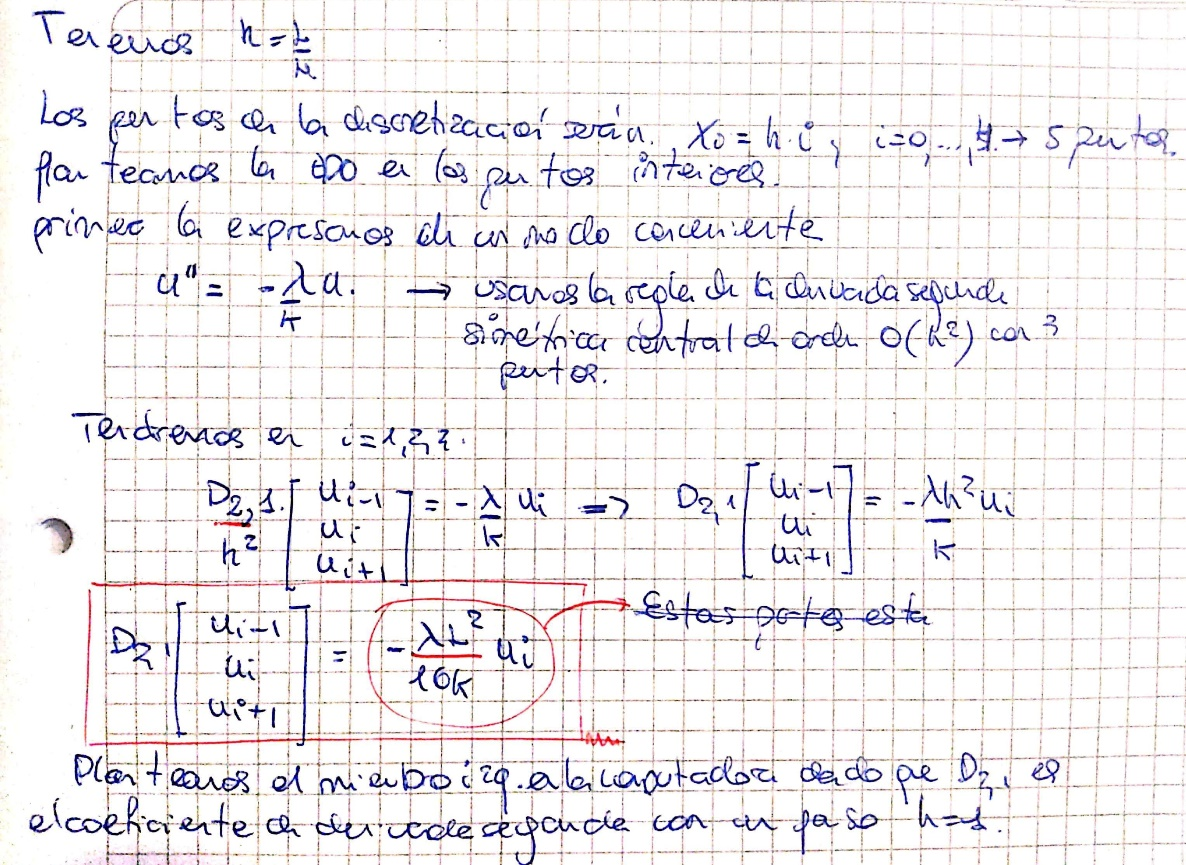 Tenemos h = L/4
Los puntos de la discretización serán, xᵢ = h·i, i=0,...,4. → 5 puntos.
planteamos la EDO en los puntos interiores.
primero la expresamos de un modo conveniente
u'' = -λ/k u. → usamos la regla de la derivada segunda
simétrica central de orden O(h²) con 3
puntos.
Tendremos en i=1,2,3.
D₂,₁/h² · [uᵢ₋₁ uᵢ uᵢ₊₁] = -λ/k uᵢ ⇒ D₂,₁ [uᵢ₋₁ uᵢ uᵢ₊₁] = -λh²/k uᵢ
D₂,₁ [uᵢ₋₁ uᵢ uᵢ₊₁] = -λL²/16k uᵢ → Estas partes esta
Planteamos el miembro izq. en la computadora dado que D₂,₁ es
el coeficiente de derivada segunda con un paso h=1.